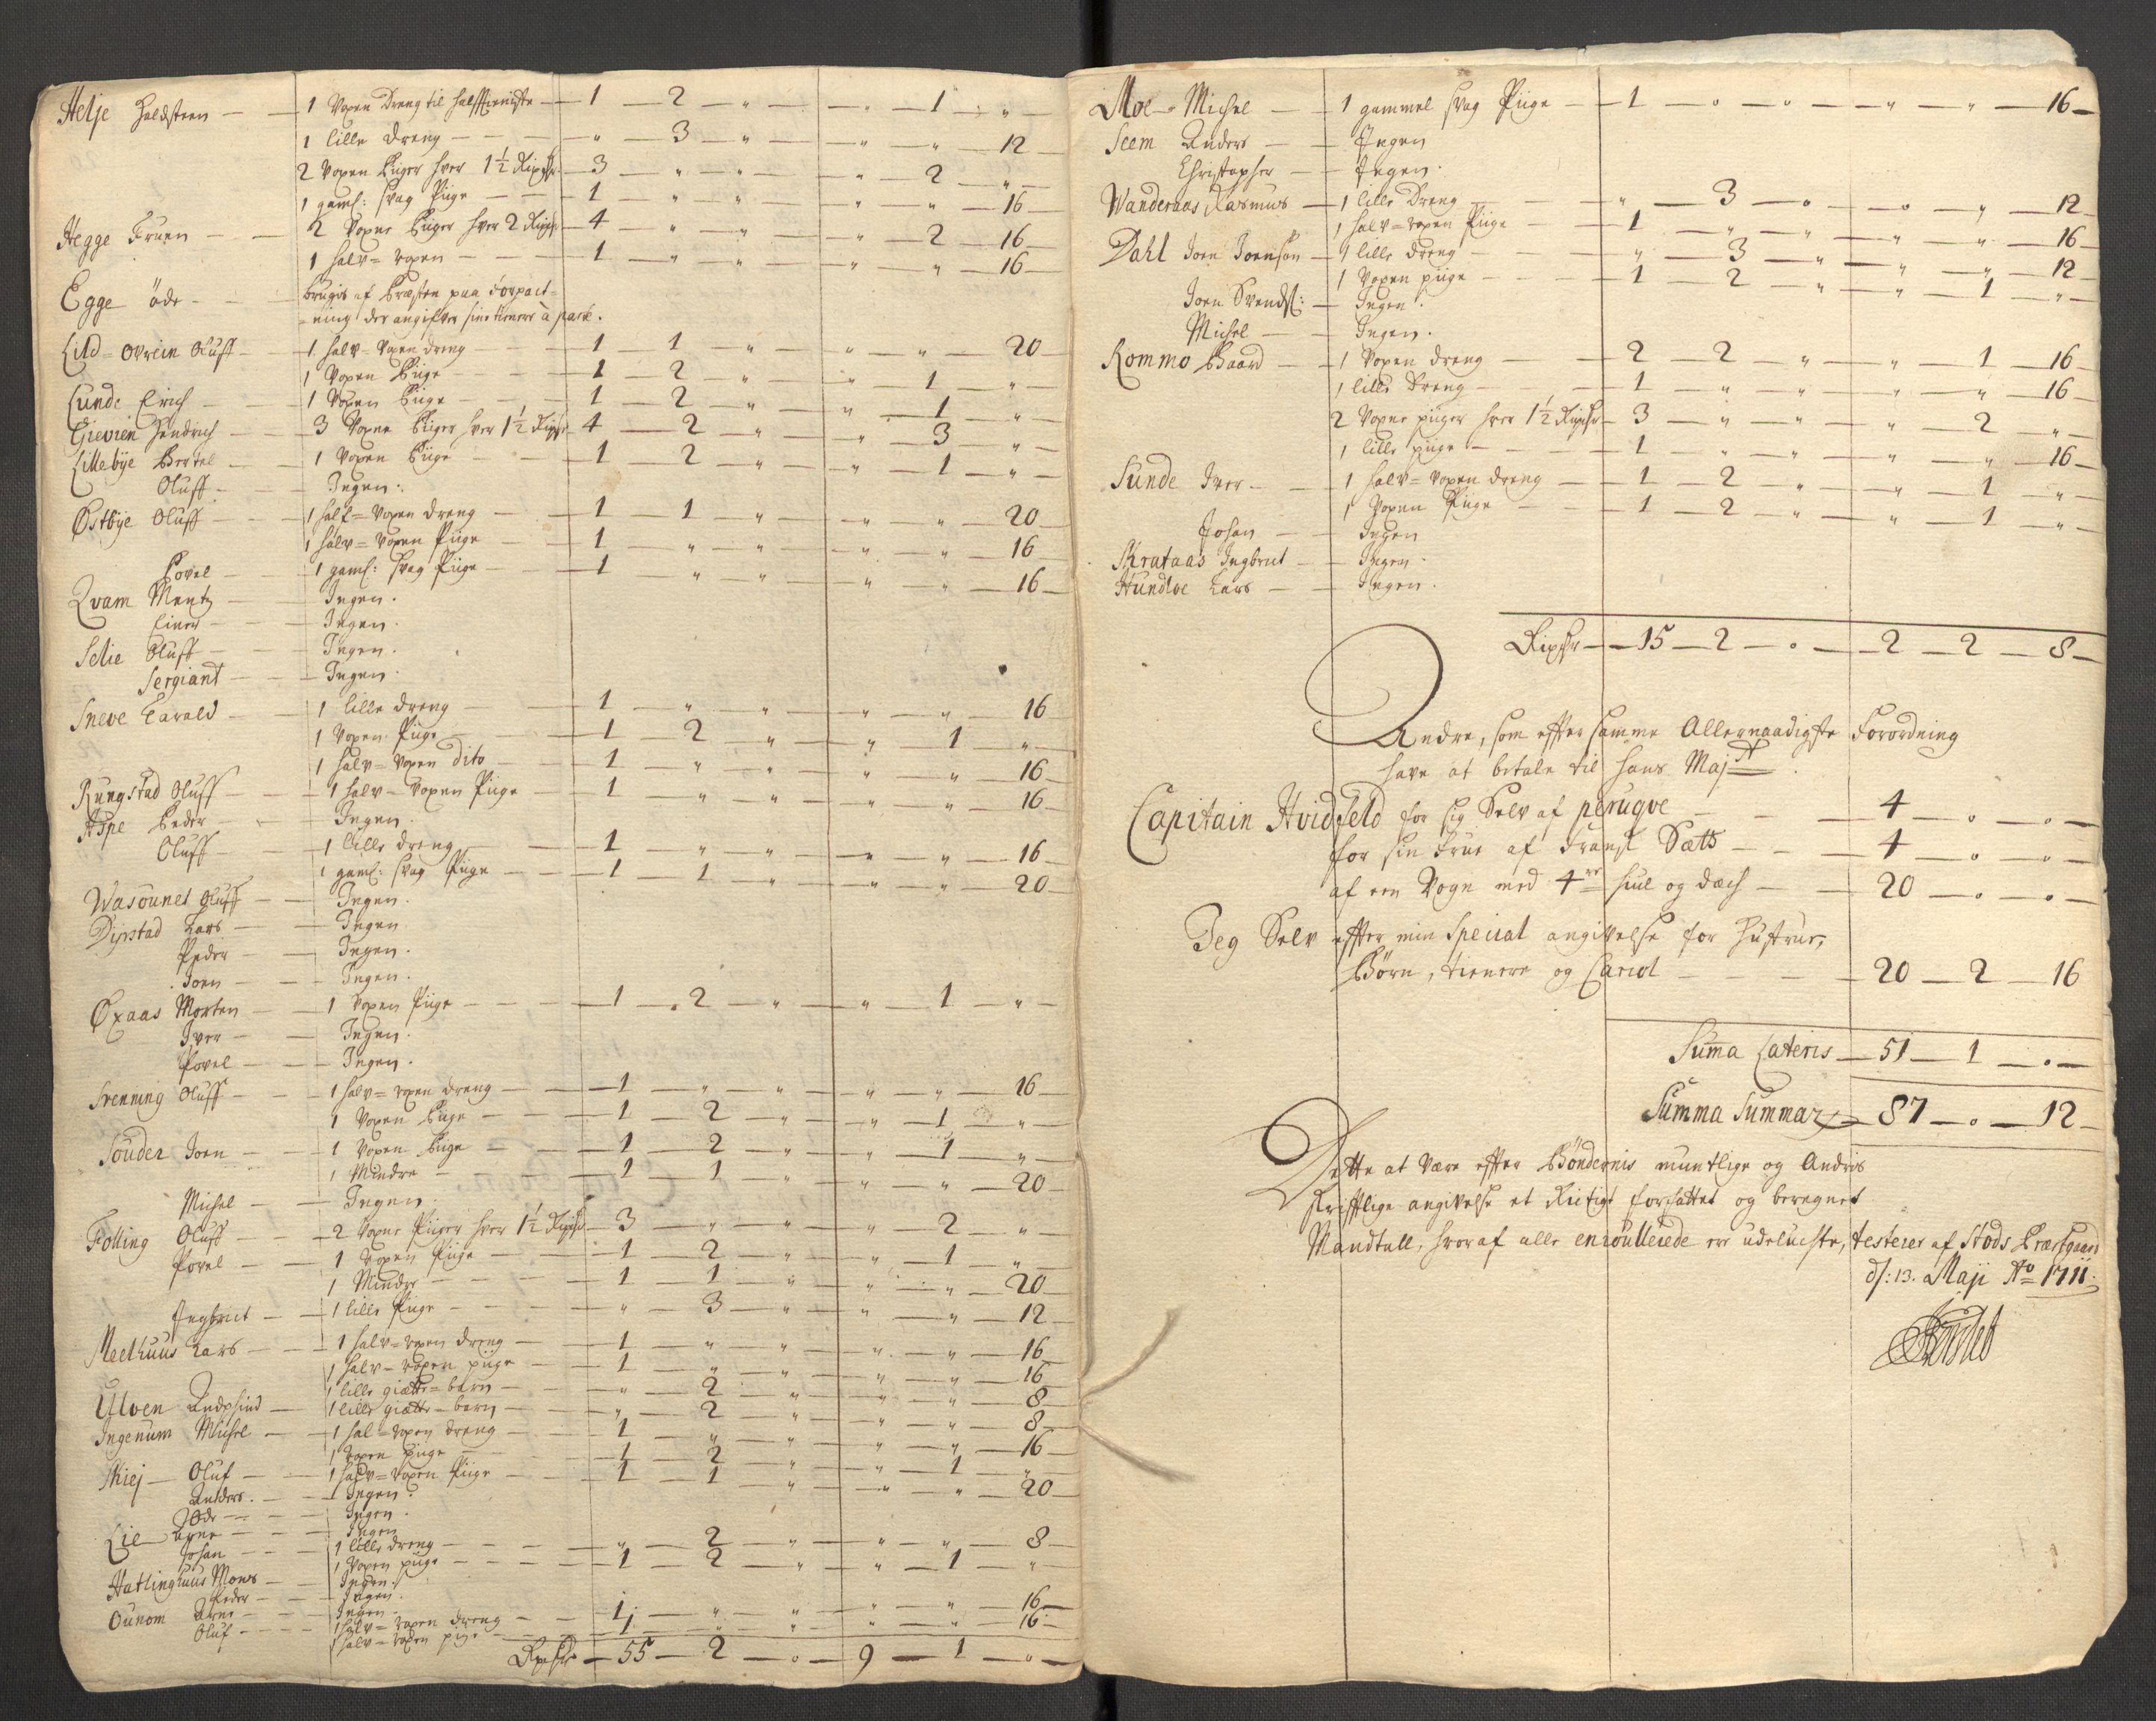 Helje Haldsteen — 1 Voxen Dreng til halfftieniste — 1 — 2 — " — " — 1 — "
1 lille dreng — " — 3 — " — " — " — 12
2 Voxen Piiger hver 1½ Rixdr — 3 — " — " — " — 2 — "
1 gaml: svag Piige — 1 — " — " — " — " — 16
Hegge Fruen — 2 Voxne Piiger hver 2 Rixdr — 4 — " — " — " — 2 — 16
1 halv=voxen — 1 — " — " — " — " — 16
Egge öde — brugis af Præsten paa Forpact=
=ning der angifver sine tienere à part.
Lild=Ovrein Oluff — 1 halv=Voxen dreng — 1 — 1 — " — " — " — 20
1 Voxen Piige — 1 — 2 — " — " — 1 — "
Lunde Erich — 1 Voxen Piige — 1 — 2 — " — " — 1 — "
Gievren Hendrich — 3 Voxne Piiger hver 1½ Rixdr — 4 — 2 — " — " — 3 — "
Lillebye Bertel — 1 Voxen Piige — 1 — 2 — " — " — 1 — "
Oluff — Ingen:
Østbye Oluff — 1 half=Voxen dreng — 1 — 1 — " — " — " — 20
1 halv=Voxen Piige — 1 — " — " — " — " — 16
Povel — 1 gaml: svag Piige — 1 — " — " — " — " — 16
Qvam Mentz — Ingen.
Einer — Ingen.
Selie Oluff — Ingen.
Sergiant — Ingen.
Sneve Harald — 1 lille dreng — 1 — " — " — " — " — 16
1 Voxen Piige — 1 — 2 — " — " — 1 — "
1 halv=Voxen dito — 1 — " — " — " — " — 16
Rungstad Oluff — 1 halv=Voxen Piige — 1 — " — " — " — " — 16
Aspe Peder — Ingen.
Oluff — 1 lille dreng — 1 — " — " — " — " — 16
1 gaml: svag Piige — 1 — 1 — " — " — " — 20
Wasounet Oluff — Ingen.
Dyrstad Lars — Ingen
Peder — Ingen.
Joen — Ingen.
Øxaas Morten — 1 Voxen Piige — 1 — 2 — " — " — 1 — "
Iver — Ingen.
Povel — Ingen.
Svenning Oluff — 1 halv=voxen dreng — 1 — " — " — " — " — 16
1 Voxen Piige — 1 — 2 — " — " — 1 — "
Souder Joen — 1 Voxen Piige — 1 — 2 — " — " — 1 — "
1 Mindre — 1 — 1 — " — " — " — 20
Michel — Ingen.
Folling Oluff — 2 Voxne Piiger hver 1½ Rixdr — 3 — " — " — " — 2 — "
Povel — 1 Voxen Piige — 1 — 2 — " — " — 1 — "
1 Mindre — 1 — 1 — " — " — " — 20
Ingbrict — 1 lille Piige — " — 3 — " — " — " — 12
Meelhuus Lars — 1 halv=voxen dreng — 1 — " — " — " — " — 16
1 halv=voxen piige — 1 — " — " — " — " — 16
1 lille giætte=barn — " — 2 — " — " — " — 8
Ulven Endfind — 1 lille giætte=barn — " — 2 — " — " — " — 8
Ingenum Michel — 1 hal=voxen dreng — 1 — " — " — " — " — 16
1 voxen Piige — 1 — 2 — " — " — 1 — "
Skiej — Oluf — 1 halv=voxen Piige — 1 — 1 — " — " — " — 20
Anders — Ingen.
öde — Ingen.
Lie Arne — Ingen
Johan — 1 lille dreng — " — 2 — " — " — " — 8
1 Voxen piige — 1 — 2 — " — " — 1 — "
Hatlinghuus Mons — Ingen.
Peder — Ingen.
Ounom Arne — Ingen.
Oluf — 1 halv=voxen dreng — 1 — " — " — " — " — 16
1 halv=voxen piige — 1 — " — " — " — " — 16
Rixdr — 55 — 2 — " — 9 — 1 — "
Moe — Michel — 1 gammel svag Piige — 1 — " — " — " — " — 16
Seem Anders — Ingen
Christopher — Ingen.
Wanderaas Rasmus — 1 lille Dreng — " — 3 — " — " — " — 12
1 halv=voxen Piige — 1 — " — " — " — " — 16
Dahl Joen Joensøn — 1 lille dreng — " — 3 — " — " — " — 12
1 Voxen piige — 1 — 2 — " — " — 1 — "
Joen Svends: — Ingen.
Michel — Ingen.
Rommo Baard — 1 Voxen dreng — 2 — 2 — " — " — 1 — 16
1 lille Dreng — 1 — " — " — " — " — 16
2 Voxne piiger hver 1½ Rixdr — 3 — " — " — " — 2 — "
1 lille piige — 1 — " — " — " — " — 16
Sunde Iver — 1 halv=voxen dreng — 1 — 2 — " — " — 1 — "
1 Voxen Piige — 1 — 2 — " — " — 1 — "
Johan — Ingen
Skrataas Ingbrict — Ingen.
Hundloe Lars — Ingen.
Rixdr — 15 — 2 — " — 2 — 2 — 8
Andre, som effter samme Allernaadigste Forordning
have at betale til Hans Majt
Capitain Hvidfeld for sig Selv af peruqve — 4 — " — "
for sin Frue af Fransk Sætts — 4 — " — "
af een Vogn med 4re Hiul og dæch — 20 — " — "
Jeg Selv effter min Special angivelse for Hustrue,
Børn, tienere og Cariol — 20 — 2 — 16
Suma Lateris — 51 — 1 — "
Summa Summar — 87 — " — 12
Dette at Være effter Böndernis mundtlige og Andris
Skrifftlige angivelse et Rictigt forfattet og beregnet
Mandtall, hvoraf alle enroullerede er udeluchte, testerer af Stods Præstgaard
d: 13. Maji Ao 1711.